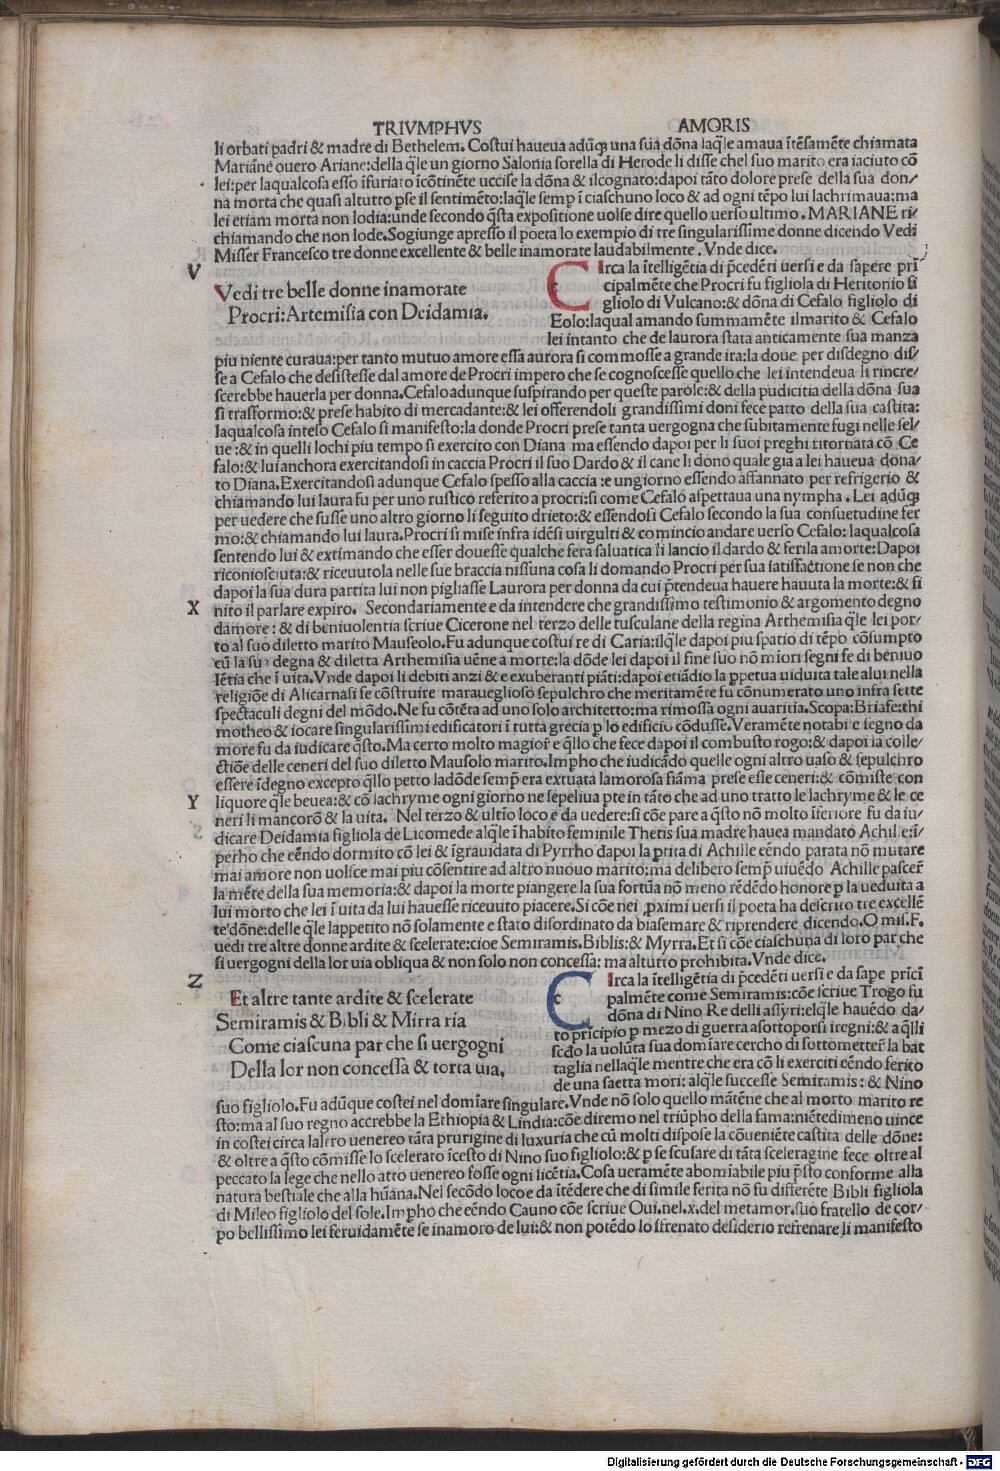 TRIVMPHVS AMORIS
li orbati padri & madre di Bethelem. Costui haueua adūq; una sua dōna laq̄le amaua ītēsamēte chiamata
Mariāne ouero Ariane:della q̄le un giorno Salonia sorella di Herode li disse chel suo marito era iaciuto cō
lei:per laqualcosa esso īfuriato īcōtinēte uccise la dōna & ilcognato:dapoi tāto dolore prese della sua don/
na morta che quasi altutto pse il sentimēto:laq̄le semp ī ciaschuno loco & ad ogni tēpo lui lachrimaua:ma
lei etiam morta non lodia:unde secondo q̄sta expositione uolse dire quello uerso ultimo. MARIANE ri/
chiamando che non lode. Sogiunge apresso il poeta lo exempio di tre singularissime donne dicendo Vedi
Misser Francesco tre donne excellente & belle inamorate laudabilmente. Vnde dice.
V
Vedi tre belle donne inamorate
Procri:Artemisia con Deidamia.
CIrca la ītelligētia di p̄cedēti uersi e da sapere prī
cipalmēte che Procri fu figliola di Heritonio fi
gliolo di Vulcano:& dōna di Cefalo figliolo di
Eolo:laqual amando summamēte ilmarito & Cefalo
lei intanto che de laurora stata anticamente sua manza
piu niente curaua:per tanto mutuo amore essa aurora si commosse a grande ira:la doue per disdegno dis/
se a Cefalo che desistesse dal amore de Procri impero che se cognoscesse quello che lei intendeua li rincre/
scerebbe hauerla per donna. Cefalo adunque suspirando per queste parole:& della pudicitia della dōna sua
si trasformo:& prese habito di mercadante:& lei offerendoli grandissimi doni fece patto della sua castita:
laqualcosa inteso Cefalo si manifesto:la donde Procri prese tanta uergogna che subitamente fugi nelle sel/
ue:& in quelli lochi piu tempo si exercito con Diana ma essendo dapoi per li suoi preghi titornata cō Ce
falo:& lui anchora exercitandosi in caccia Procri il suo Dardo & il cane li dono quale gia a lei haueua dona/
to Diana. Exercitandosi adunque Cefalo spesso alla caccia:e ungiorno essendo affannato per refrigerio &
chiamando lui laura fu per uno rustico referito a procri:si come Cefalo aspettaua una nympha. Lei adūq;
per uedere che fusse uno altro giorno li seguito drieto:& essendosi Cefalo secondo la sua consuetudine fer
mo:& chiamando lui laura. Procri si mise infra idēsi uirgulti & comincio andare uerso Cefalo: laqualcosa
sentendo lui & extimando che esser douesse qualche fera saluatica li lancio il dardo & ferila amorte:Dapoi
riconiosciuta:& riceuutola nelle sue braccia nissuna cosa li domando Procri per sua satisfactione se non che
dapoi la sua dura partita lui non pigliasse Laurora per donna da cui p̄tendeua hauere hauuta la morte:& fi
X
nito il parlare expiro. Secondariamente e da intendere che grandissimo testimonio & argomento degno
damore: & di beniuolentia scriue Cicerone nel terzo delle tusculane della regina Arthemisia q̄le lei por/
to al suo diletto marito Mauseolo. Fu adunque costui re di Caria:ilq̄le dapoi piu spatio di tēpo cōsumpto
cū la sua degna & diletta Arthemisia uēne a morte:la dōde lei dapoi il fine suo nō mīori segni fe di beniuo
lētia che ī uita. Vnde dapoi li debiti anzi & e exuberanti piāti:dapoi etiādio la ppetua uiduita tale alui nella
religiōe di Alicarnasi fe cōstruire marauegliioso sepulchro che meritamēte fu cōnumerato uno infra sette
spectaculi degni del mōdo. Ne fu cōtēta ad uno solo architetto:ma rimossa ogni auaritia. Scopa:Briase:thi
motheo & iocare singularissimi edificatori ī tutta grecia p lo edificio cōdusse. Veramēte notabi e segno da
more fu da iudicare q̄sto. Ma certo molto magior e q̄llo che fece dapoi il combusto rogo:& dapoi la colle/
ctiōe delle ceneri del suo diletto Mausolo marito. Impho che iudicādo quelle ogni altro uaso & sepulchro
essere īdegno excepto q̄llo petto ladōde semp̄ era extuata lamorosa fiāma prese esse ceneri:& cōmiste con
Y
liquore q̄le beuea:& cō lachryme ogni giorno ne sepeliua pte in tāto che ad uno tratto le lachryme & le ce
neri li mancorō & la uita. Nel terzo & ultīo loco e da uedere:si cōe pare a q̄sto nō molto īferiore fu da iu/
dicare Deidamia figliola de Licomede alq̄le ī habito feminile Thetis sua madre hauea mandato Achille:ī/
perho che eēndo dormito cō lei & īgrauidata di Pyrrho dapoi la ptita di Achille eēndo parata nō mutare
mai amore non uolsce mai piu cōsentire ad altro nuouo marito:ma delibero semp̄ uiuēdo Achille pascer
la mēte della sua memoria:& dapoi la morte piangere la sua fortūa nō meno rēdēdo honore p la ueduita a
lui morto che lei ī uita da lui hauesse riceuuto piacere. Si cōe nei pximi uersi il poeta ha descrito tre excellē
te dōne:delle q̄le lappetito nō solamente e stato disordinato da biasemare & riprendere dicendo. O mis. F.
uedi tre altre donne ardite & scelerate:cioe Semiramis. Biblis:& Myrra. Et si cōe ciaschuna di loro par che
si uergogni della lor uia obliqua & non solo non concessa: ma altutto prohibita. Vnde dice.
Z
Et altre tante ardite & scelerate
Semiramis & Bibli & Mirra ria
Come ciascuna par che si uergogni
Della lor non concessa & torta uia.
CIrca la ītelligētia di p̄cedēti uersi e da sape prīcī
palmēte come Semiramis:cōe scriue Trogo fu
dōna di Nino Re delli assyri:elq̄le hauēdo da/
to prīcipio p mezo di guerra asottoporsi iregni:& a q̄lli
scdo la uolūta sua domīare cercho di sottometter la bat
taglia nellaq̄le mentre che era cō li exerciti eēndo ferito
de una saetta mori: alq̄le successe Semiramis: & Nino
suo figliolo. Fu adūque costei nel domīare singulare. Vnde nō solo quello mātēne che al morto marito re
sto:ma al suo regno accrebbe la Ethiopia & Lindia:cōe diremo nel triūpho della fama:niētedimeno uince
in costei circa laltro uenereo tāta prurigine di luxuria che cū molti dispose la cōueniēte castita delle dōne:
& oltre a q̄sto cōmisse lo scelerato īcesto di Nino suo figliolo:& p se scusare di tāta sceleragine fece oltre al
peccato la lege che nello atto uenereo fosse ogni licētia. Cosa ueramēte abomīabile piu p̄sto conforme alla
natura bestiale che alla hūana. Nel secōdo loco e da ītēdere che di simile ferita nō fu differēte Bibli figliola
di Mileo figliolo del sole. Impho che eēndo Cauno cōe scriue Oui. nel. x. del metamor. suo fratello de cor/
po bellissimo lei feruidamēte se inamoro de lui:& non potēdo lo sfrenato desiderio refrenare li manifesto
Digitalisierung gefördert durch die Deutsche Forschungsgemeinschaft - DFG